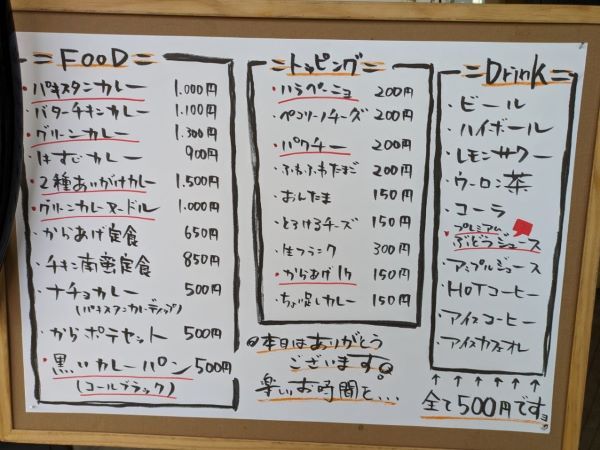 FOOD
・パキスタンカレー 1.000円
・バターチキンカレー 1.100円
・グリーンカレー 1.300円
・はすむカレー 900円
・2種あいがけカレー 1.500円
・グリーンカレーヌードル 1.000円
・からあげ定食 650円
・チキン南蛮定食 850円
・ナチョカレー 500円
(パキスタンカレーディップ)
・からポテセット 500円
・黒いカレーパン 500円
(コールブラック)
トッピング
・ハラペーニョ 200円
・ペコリーノチーズ 200円
・パクチー 200円
・ふわふわたまご 200円
・おんたま 150円
・とろけるチーズ 150円
・生フランク 300円
・からあげ1ケ 150円
・ちょい足しカレー 150円
本日はありがとう
ございます。
楽しいお時間を...
Drink
・ビール
・ハイボール
・レモンサワー
・ウーロン茶
・コーラ
・プレミアム
ぶどうジュース
・アップルジュース
・HOTコーヒー
・アイスコーヒー
・アイスカフェオレ
↑ ↑ ↑ ↑ ↑ ↑
全て500円です